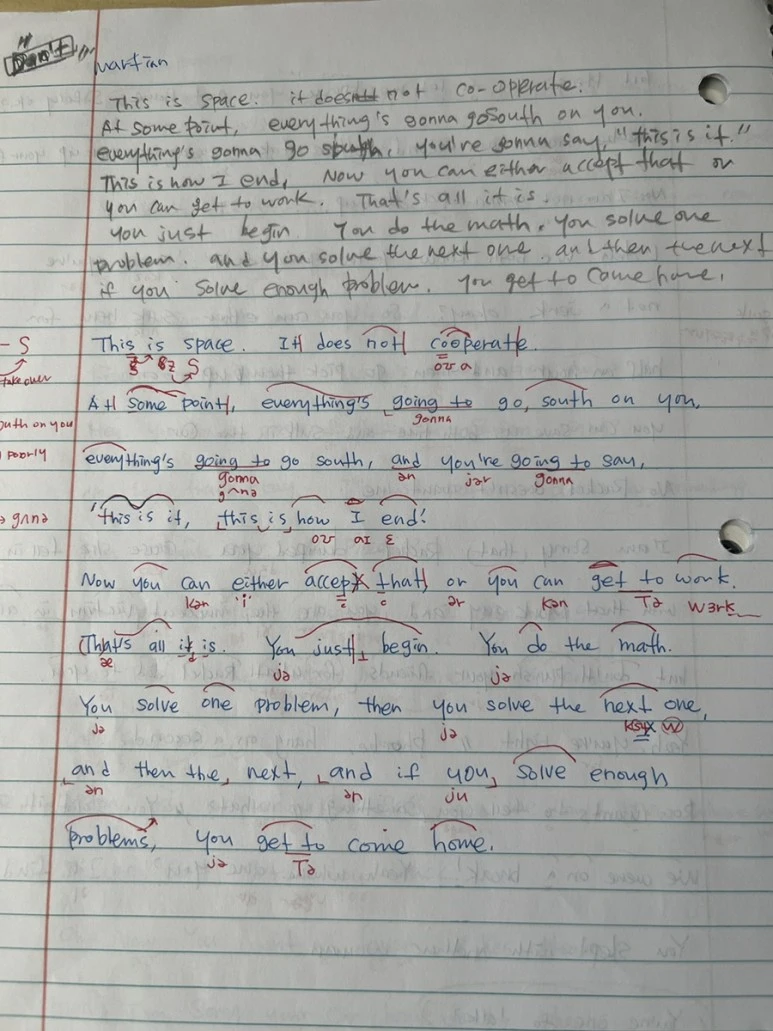 Martian
This is space. it does not co-operate.
At some point, everything's gonna go south on you.
everything's gonna go south, you're gonna say, "this is it."
This is how I end, Now you can either accept that or
you can get to work. That's all it is.
you just begin You do the math. you solve one
problem. and you solve the next one. and then the next
if you solve enough problem. you get to come home.
- S This is space. It does not cooperate.
take over z z S oʊ ə
At some point, everything's going to go, south on you,
outh on you gonna
poorly everything's going to go south, and you're going to say,
gonna ən jər gonna
gʌnə
gʌnə "this is it, this is how I end!
aɪ ɛ
Now you can either accept that or you can get to work.
kən i ər kən Tə wɜrk
That's all it is. You just begin. You do the math.
æ jə jə
You solve one problem, then you solve the next one,
jə jə w
and then the, next, and if you, solve enough
ən ən ju
problems, you get to come home.
jə Tə